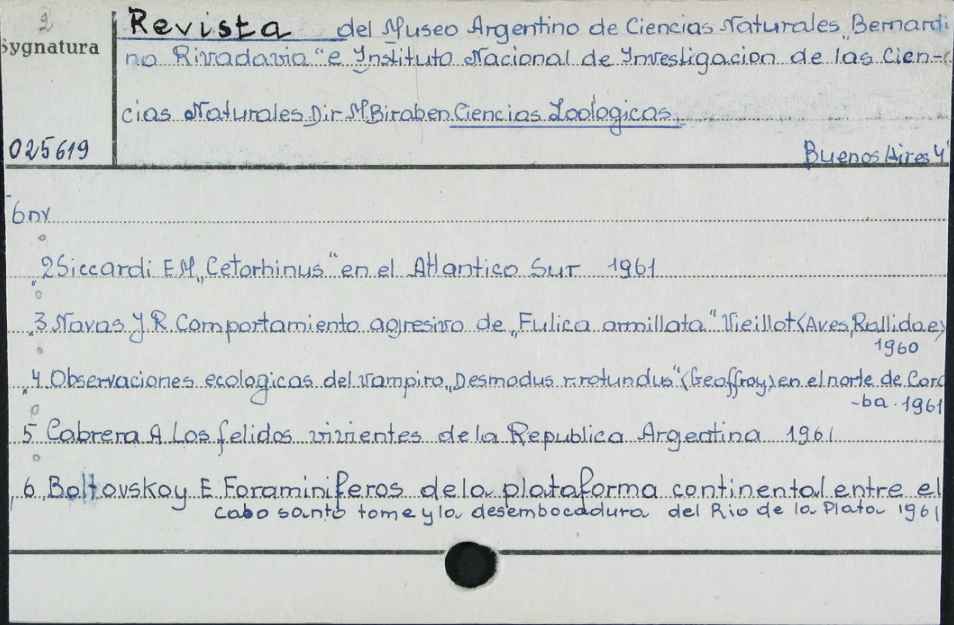 2
Sygnatura
025619
Revista del Museo Argentino de Ciencias Naturales „Bernardi
no Rivadavia" e Instituto Nacional de Investigacion de las Cien-
cias Naturales Dir M Biraben Ciencias Zoologicas
Buenos Aires 4°
6 nr
2 Siccardi E M „Cetorhinus" en el Atlantico Sur 1961
3 Navas J R. Comportamiento agresivo de „Fulica armillata" Vieillot (Aves, Rallidae)
1960
4 Observaciones ecologicas del vampiro „Desmodus r. rotundus" (Geoffroy) en el norte de Cord
-ba. 1961
5 Cabrera A. Los felidos vivientes de la Republica Argentina 1961
6 Boltovskoy E Foraminiferos de la plataforma continental entre el
cabo santo tome y la desembocadura del Rio de la Plata 1961